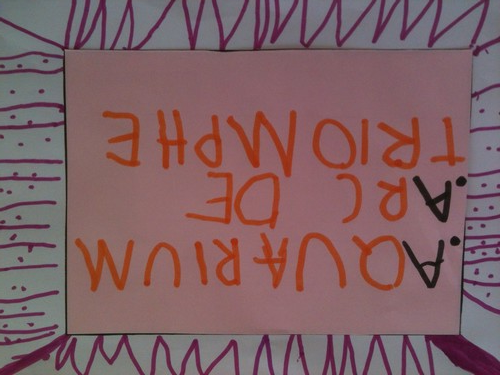 AQUARIUM
ARC DE
TRIOMPHE